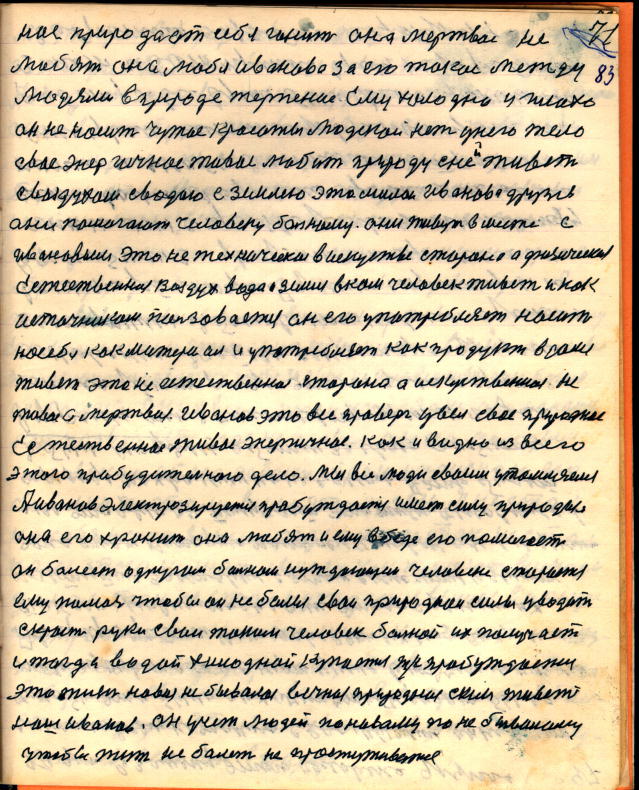 71
83
ное природа ет себя гонит она мертвое не
любят она любя иванова за его такое между
Людями в природе терпение Ему холодно и плохо
он не носит чужое красоты Людской нет у него тело
свое энергичное живое любит природу с ней живет
своздухом сводою с землею это милои иванова друзьев
они помогают человеку болному. они живут вместе с
ивановым это не техническая вискуства сторона а физическая
Естественная воздух вода земля в ком человек живет и как
источником ползовается он его употребляет носит
на себя как материал и употребляет как продукт в
живет это не естественная сторона а искуственная. не
живая а мертвая. иванов это все проверг увел свое природное
Естественное живое энергичное. как и видно из всего
этого пробудительного дело. мы все люди своим утомляемся
А иванов электрозируется пробуждается имеет силу природы.
она его хранит она любят и ему в беде его помогает
он болеет о другом болном нуждающем человеке старается
ему помоч чтобы он не болел свои природнои силы уводит
скрост руки свои таким человек болной их получает
и тогда водой холодной купается пробуждаеться
это жизнь новая небывалая вечная природная живет
наш иванов. он учет людей поновому по не бывалому
чтобы жит не болет не простуживатся